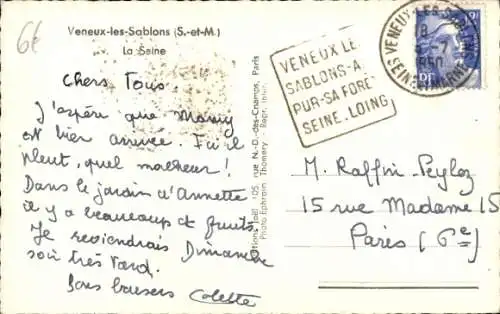 6€
Veneux-les-Sablons (S.-et-M.)
La Seine
Chers Tous.
J'aspère que Mamy
est bien arrivée. Ici il
pleut, quel malheur !
Dans le jardin d'Annette
il y a beaucoup de fruits.
Je reviendrai Dimanche
soir très tard.
Bons baisers Colette
Editions Joël - 105, rue N.-D.-des-Champs, Paris
Photo Ephraïm, Thomery Repr. Inter.
VENEUX LES
SABLONS-A
PUR-SA FORÊT
SEINE.LOING
VENEUX-LES-SABLONS
8
-7
1950
SEINE-ET-MARNE
M. Raffin-Peyloz
15 rue Madame 15
Paris (6e)